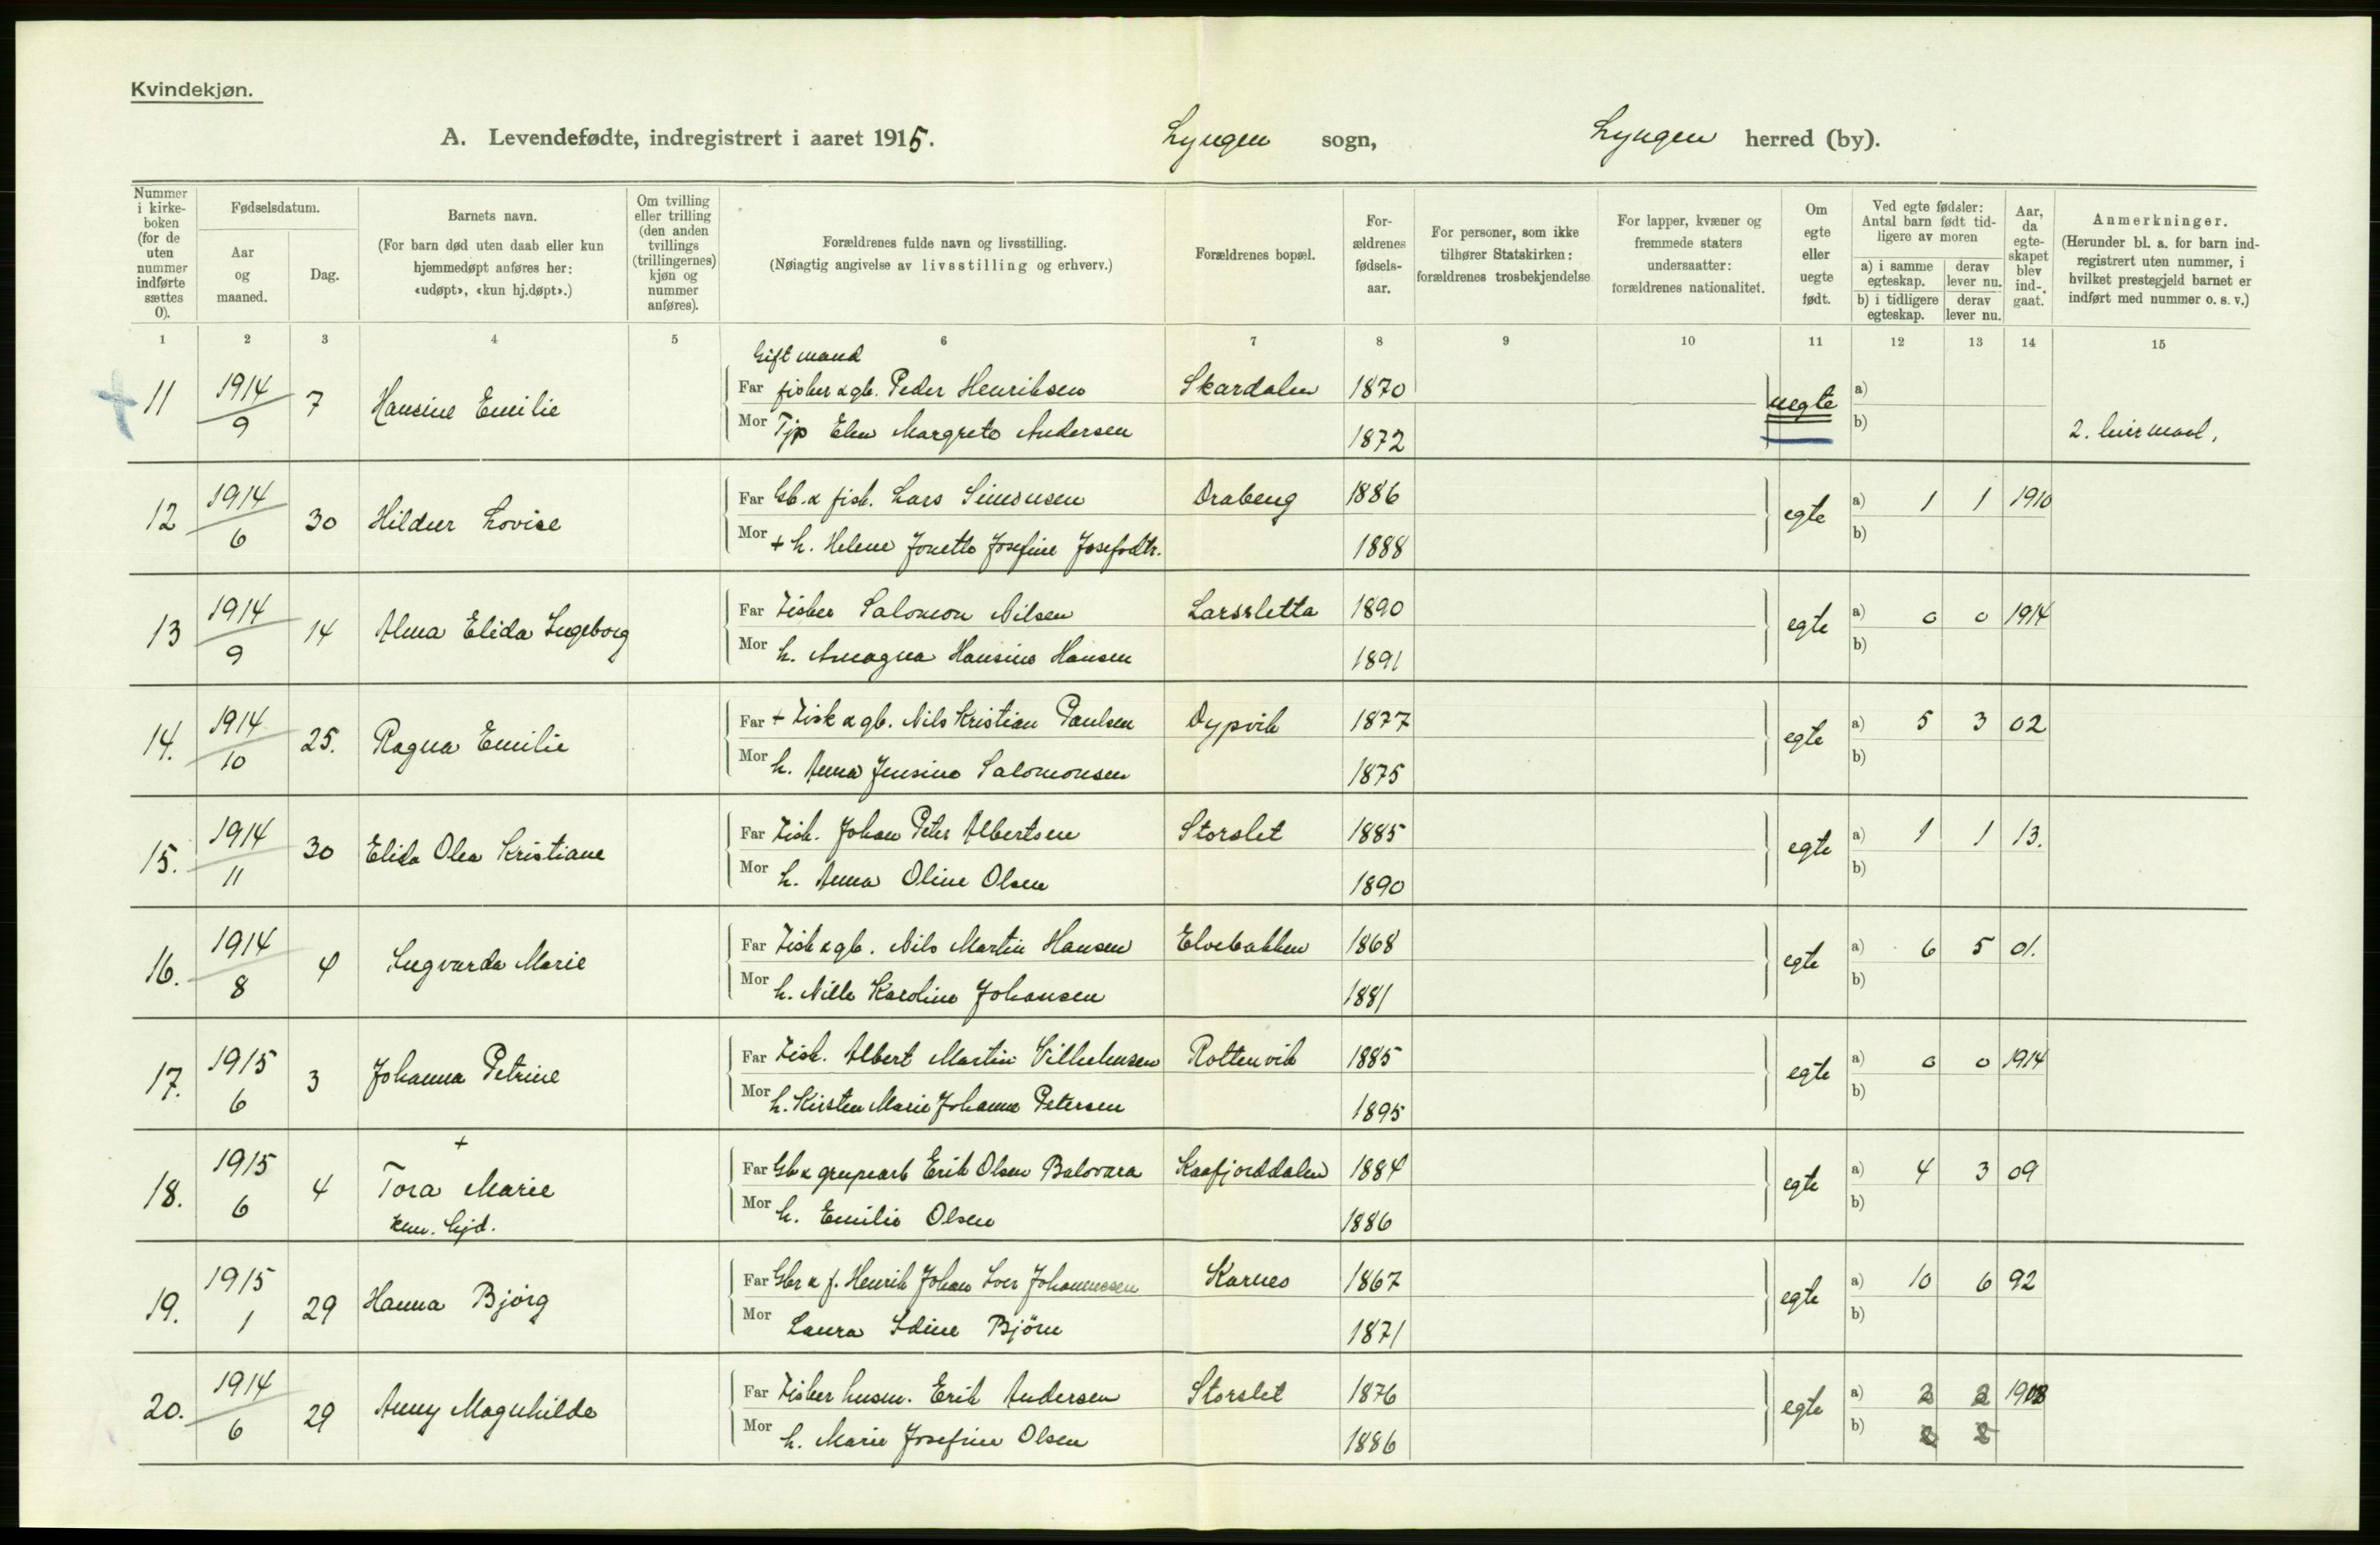 Kvindekjøn.
A. Levendefødte, indregistrert i aaret 1915. Lyngen sogn, Lyngen herred (by).
Nummer i kirke- boken (for de uten nummer indførte sættes 0).
Fødselsdatum.
Aar og maaned.
Dag.
Barnets navn.
(For barn død uten daab eller kun hjemmedøpt anføres her: «udøpt», «kun hj.døpt».)
Om tvilling eller trilling (den anden tvillings (trillingernes) kjøn og nummer anføres).
Forældrenes fulde navn og livsstilling.
(Nøiagtig angivelse av livsstilling og erhverv.)
Forældrenes bopæl.
For- ældrenes fødsels- aar.
For personer, som ikke tilhører Statskirken: forældrenes trosbekjendelse
For lapper, kvæner og fremmede staters undersaatter: forældrenes nationalitet.
Om egte eller uegte født.
Ved egte fødsler: Antal barn født tid- ligere av moren
a) i samme egteskap. derav lever nu.
b) i tidligere egteskap. derav lever nu.
Aar, da egte- skapet blev ind- gaat.
Anmerkninger.
(Herunder bl. a. for barn ind- registrert uten nummer, i hvilket prestegjeld barnet er indført med nummer o. s. v.)
1 2 3 4 5 6 7 8 9 10 11 12 13 14 15
Gift mand
11 1914/9 7 Hansine Emilie Far fisker & gb. Peder Henriksen Skardalen 1870 uegte a)
Mor Tjp Elen Margrete Andersen 1872 b) 2. leiermaal.
12 1914/6 30 Hildur Lovise Far Gb. & fisk. Lars Simonsen Drabeng 1886 egte a) 1 1 1910
Mor + h. Helene Jonette Josefine Josefsdtr. 1888 b)
13 1914/9 14 Alma Elida Ingeborg Far Fisker Salomon Nilsen Larsletta 1890 egte a) 0 0 1914
Mor h. Amagna Hansine Hansen 1891 b)
14. 1914/10 25. Ragna Emilie Far + Fisk & gb. Nils Kristian Paulsen Dypvik 1877 egte a) 5 3 02
Mor h. Anna Jensine Salomonsen 1875 b)
15. 1914/11 30 Elida Olea Kristiane Far Fisk. Johan Peter Albertsen Storslet 1885 egte a) 1 1 13.
Mor h. Anna Oline Olsen 1890 b)
16. 1914/8 4 Ingvarda Marie Far Fisk & gb. Nils Martin Hansen Elvebakken 1868 egte a) 6 5 01.
Mor h. Nille Karoline Johansen 1881 b)
17. 1915 6 3 Johanna Petrine Far Fisk. Albert Martin Vilhelmsen Rottenvik 1885 egte a) 0 0 1914
Mor h. Kirsten Marie Johanne Petersen 1895 b)
+
18. 1915 6 4 Tora Marie Far Gb & grupearb Erik Olsen Balovara Kaafjorddalen 1884 egte a) 4 3 09
kun. hjd. Mor h. Emilie Olsen 1886 b)
19. 1915 1 29 Hanna Bjørg Far Gbr & f. Henrik Johan Iver Johannessen Karnes 1867 egte a) 10 6 92
Mor Laura Edine Bjørn 1871 b)
20. 1914/6 29 Anny Magnhilde Far Fisker husm. Erik Andersen Storslet 1876 egte a) 2 2 1908
Mor h. Marie Josefine Olsen 1886 b)